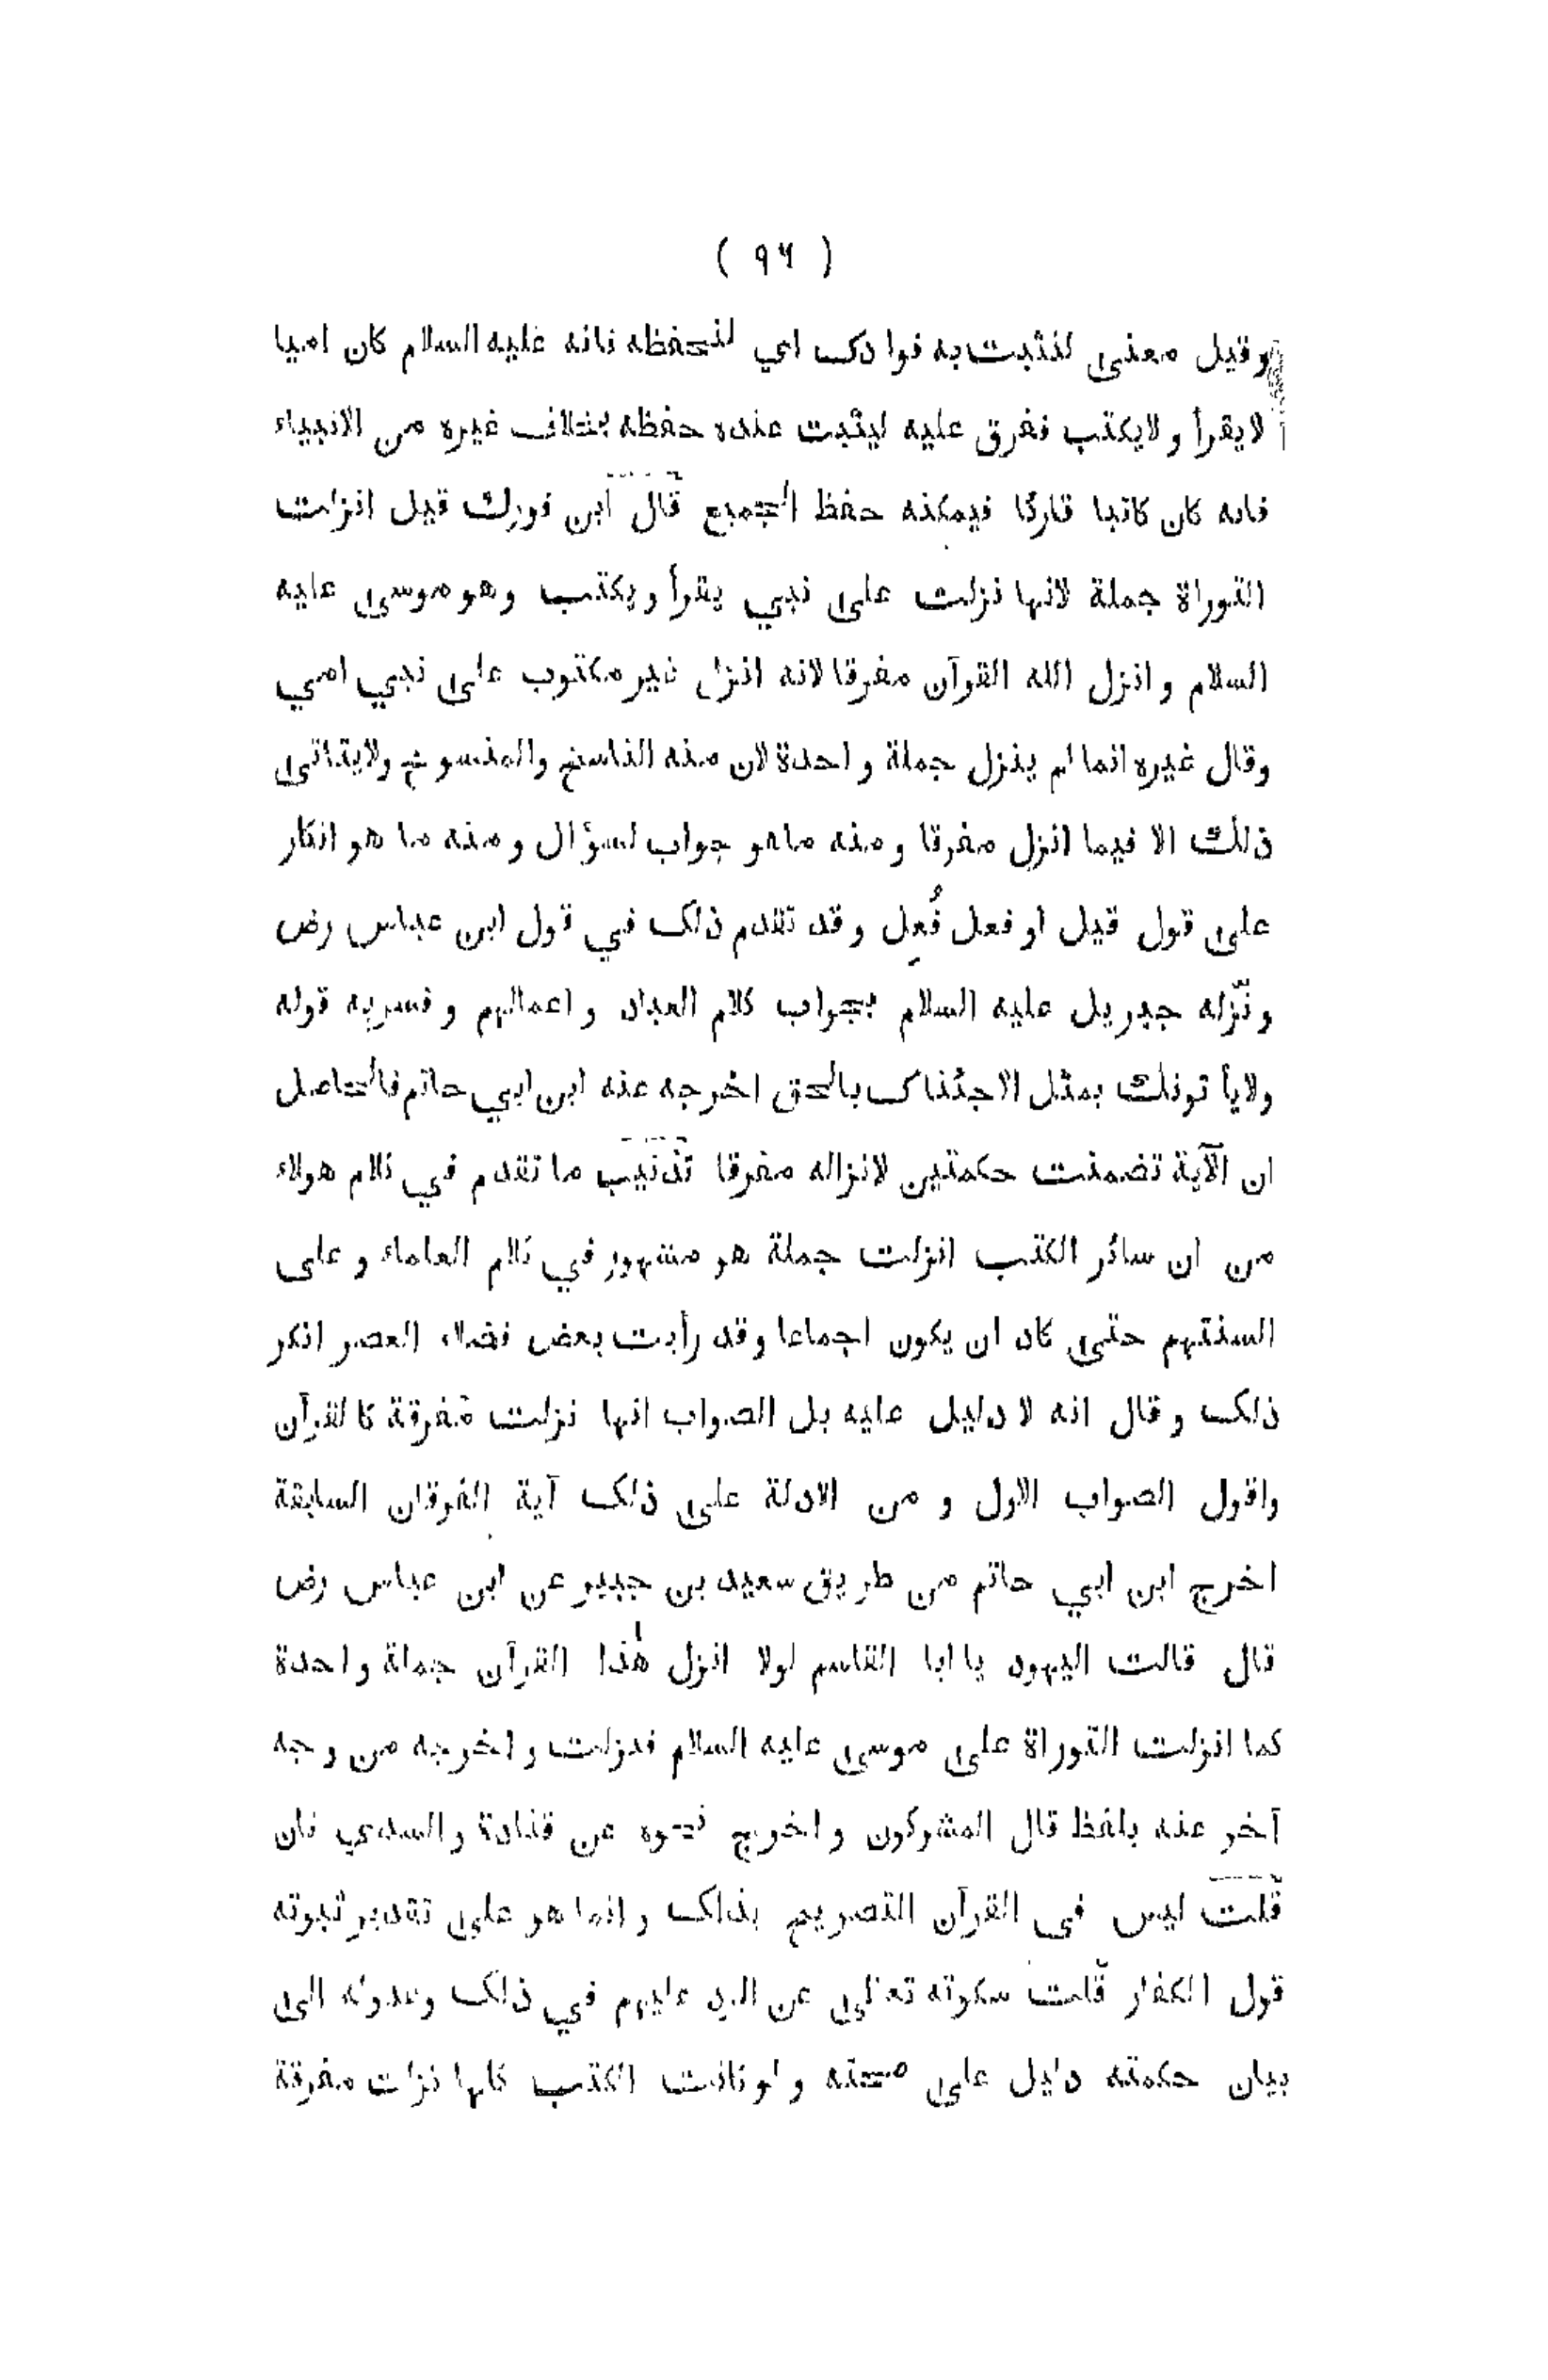 ( ٩٦ )
وقيل معنى لنثبت به فوادك اي لنحفظه فانه عليه السلام كان اميا
لايقرأ ولايكتب ففرق عليه ليثبت عنده حفظه بخلاف غيره من الانبياء
فانه كان كاتبا قارئا فيمكنه حفظ الجميع قال ابن فورك قيل انزلت
التوراة جملة لانها نزلت على نبي يقرأ ويكتب وهو موسى عليه
السلام وانزل الله القرآن مفرقا لانه انزل غير مكتوب على نبي امي
وقال غيره انما لم ينزل جملة واحدة لان منه الناسخ والمنسوخ ولايتاتى
ذلك الا فيما انزل مفرقا ومنه ماهو جواب لسؤال ومنه ما هو انكار
على قول قيل او فعل فُعِل وقد تقدم ذلك في قول ابن عباس رض
ونزّله جبريل عليه السلام بجواب كلام العباد واعمالهم وفسر به قوله
ولايأ تونك بمثل الا جئناك بالحق اخرجه عنه ابن ابي حاتم فالحاصل
ان الآية تضمنت حكمتين لانزاله مفرقا تذنيب ما تقدم في كلام هولاء
من ان سائر الكتب انزلت جملة هو مشهور في كلام العلماء وعلى
السنتهم حتى كاد ان يكون اجماعا وقد رأيت بعض فضلاء العصر انكر
ذلك وقال انه لا دليل عليه بل الصواب انها نزلت مفرقة كالقرآن
واقول الصواب الاول و من الادلة على ذلك آية الفرقان السابقة
اخرج ابن ابي حاتم من طريق سعيد بن جبير عن ابن عباس رض
قال قالت اليهود يا ابا القاسم لولا انزل هٰذا القرآن جملة واحدة
كما انزلت التوراة على موسى عليه السلام فنزلت واخرجه من وجه
آخر عنه بلفظ قال المشركون واخرج نحوه عن قتادة والسدي فان
قلت ليس في القرآن التصريح بذلك وانما هو على تقدير ثبوته
قول الكفار قلت سكوته تعالى عن الرد عليهم في ذلك وعدوله الى
بيان حكمته دليل على صحته ولو كانت الكتب كلها نزلت مفرقة